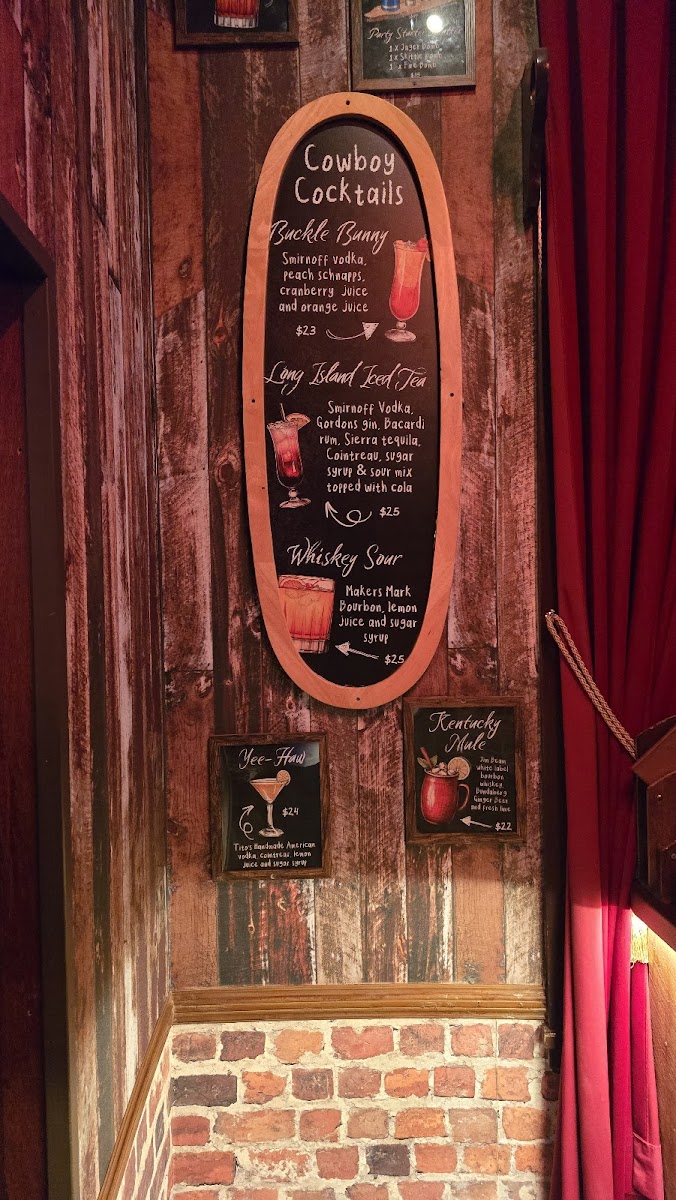 Party Starter
1 x Jager Bomb
1 x Skittle Bomb
Cowboy
Cocktails
Buckle Bunny
Smirnoff vodka,
peach schnapps,
cranberry juice
and orange juice
$23
Long Island Iced Tea
Smirnoff Vodka,
Gordons gin, Bacardi
rum, Sierra tequila,
Cointreau, sugar
syrup & sour mix
topped with cola
$25
Whiskey Sour
Makers Mark
Bourbon, lemon
juice and sugar
syrup
$25
Kentucky
Mule
Jim Beam
white label
bourbon
whiskey,
Bundaberg
Ginger Beer
and fresh lime
$22
Yee-Haw
$24
Tito's Handmade American
vodka, cointreau, lemon
juice and sugar syrup